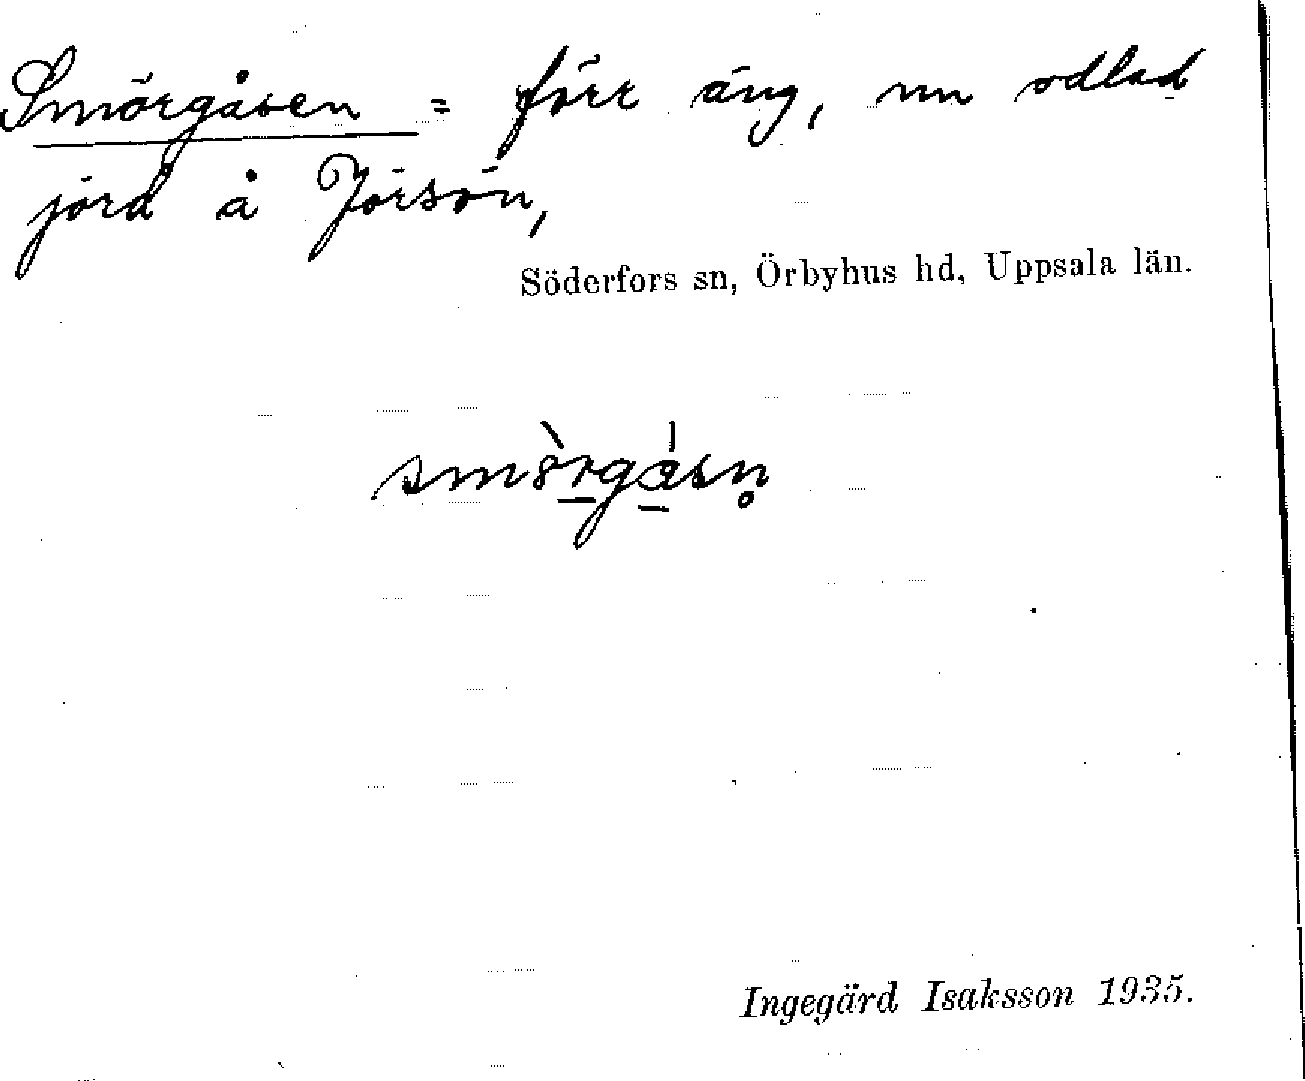 Smörgåsen = förr äng, nu odlad
jord å Jörsön,
Söderfors sn, Örbyhus hd, Uppsala län.
Ingegärd Isaksson 1935.